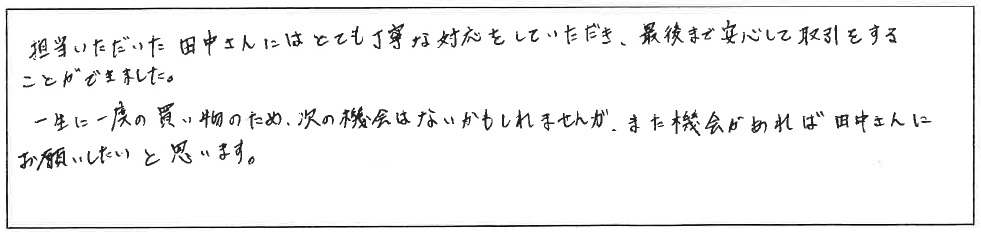 担当いただいた田中さんにはとても丁寧な対応をしていただき、最後まで安心して取引をする
ことができました。
一生に一度の買い物のため、次の機会はないかもしれませんが、また機会があれば田中さんに
お願いしたいと思います。